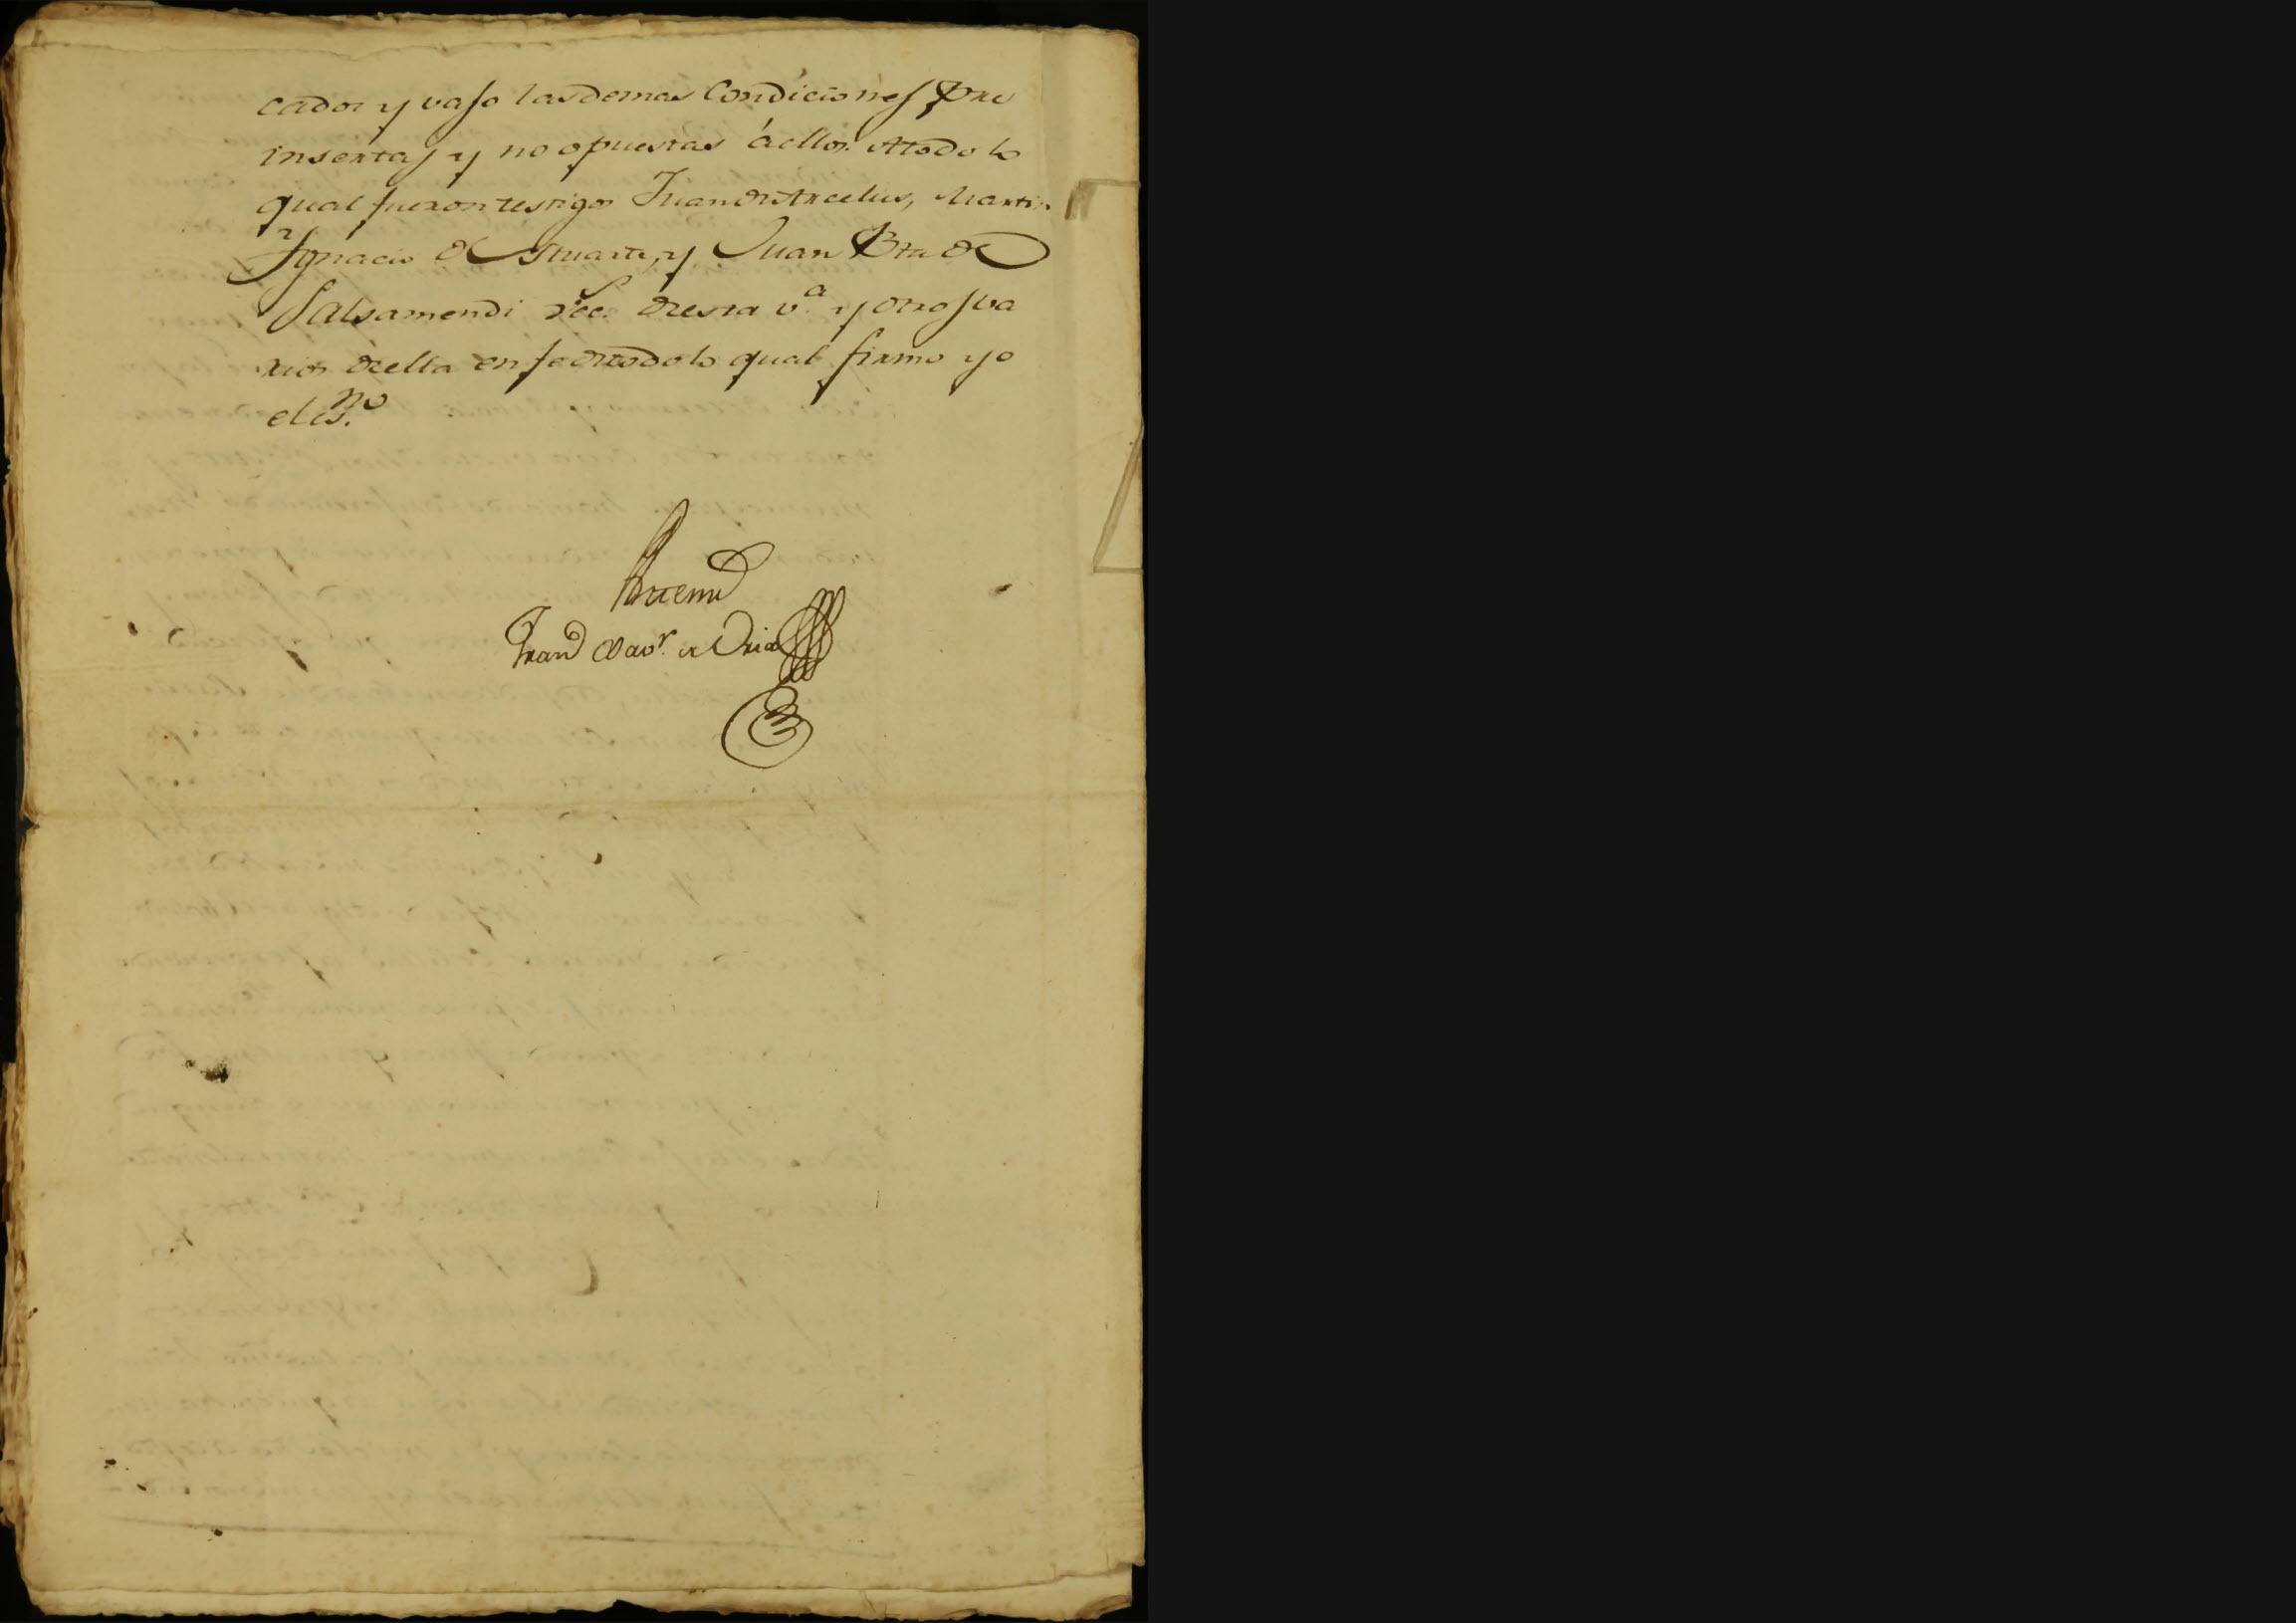 cados y vajo las demas Condiciones pre
insertas y no opuestas á ellos. A todo lo
qual fueron testigos Juan de Arcelus, Martin
Ygnacio de Ituarte, y Juan Bta de
Salsamendi vec.s de esta v.a y otros va
rios de ella en fe de todo lo qual firmo yo
el es.no
Antemi
Fran.co Xav.r de Oria